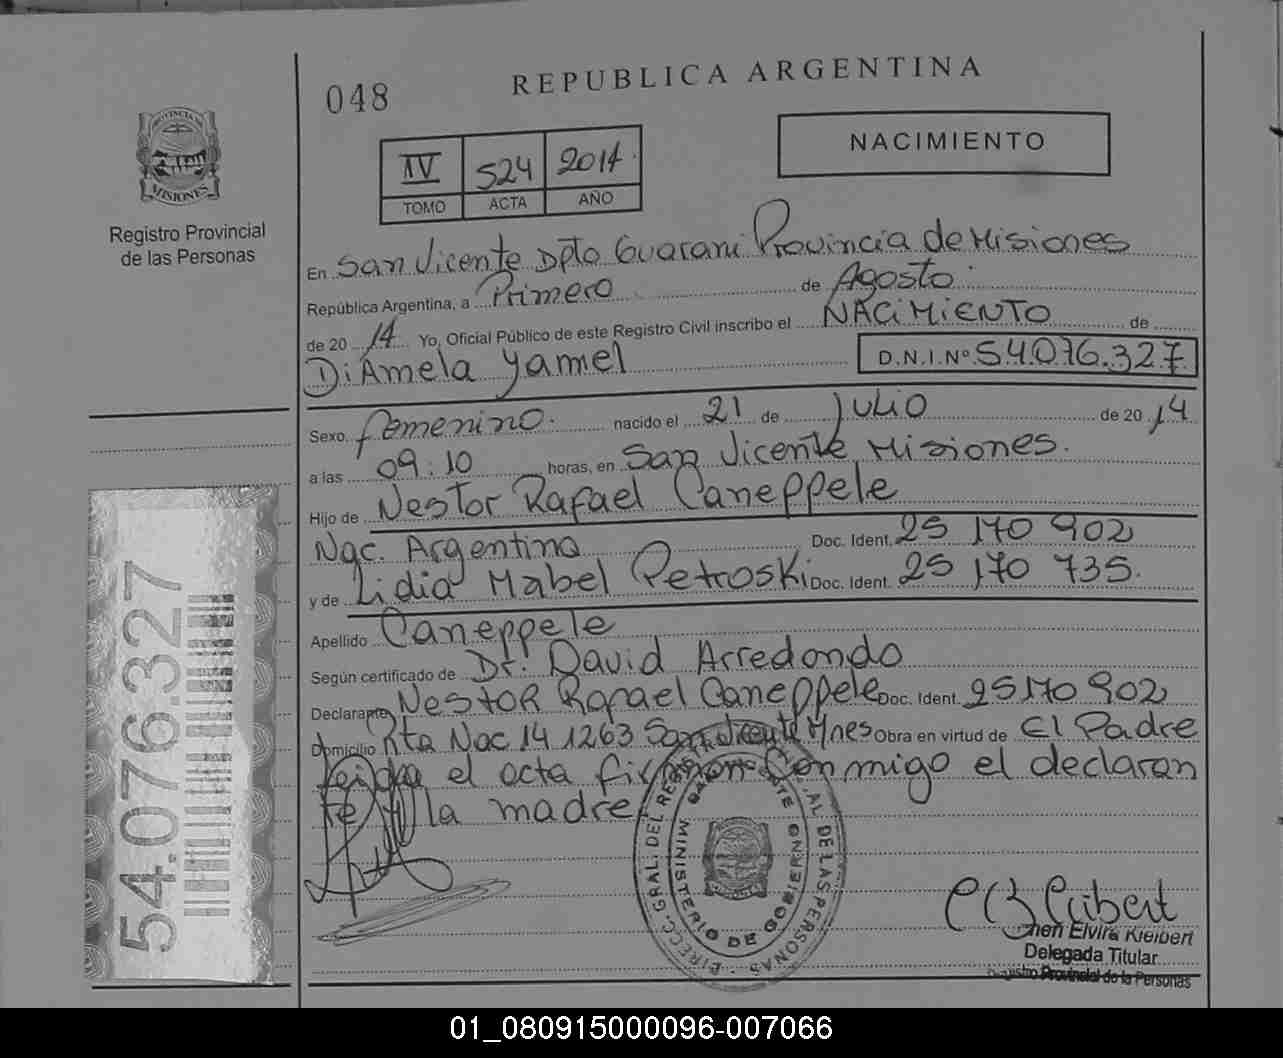 048
REPUBLICA ARGENTINA
PROVINCIA DE MISIONES
Registro Provincial
de las Personas
IV 524 2014
TOMO ACTA AÑO
NACIMIENTO
En San Vicente Dpto Guarani Provincia de Misiones
República Argentina, a Primero de Agosto
de 20 14 Yo, Oficial Público de este Registro Civil inscribo el NACiMiENTO de
DiAmela Yamel D.N.I.Nº 54.076.327
Sexo femenino. nacido el 21 de Julio de 20 14
a las 09:10 horas, en San Vicente Misiones.
Hijo de Nestor Rafael Caneppele
Nac. Argentina Doc. Ident. 25 170 902
y de Lidia Mabel Petroski Doc. Ident. 25 170 735.
Apellido Caneppele
Según certificado de Dr. David Arredondo
Declarante Nestor Rafael Caneppele Doc. Ident. 25170 902
Domicilio Rta Nac 14 1263 San Vicente Mnes Obra en virtud de El Padre
leida el acta firman conmigo el declaran
te y la madre
54.076.327
DIRECC. GRAL. DEL REG. DE LAS PERSONAS
MINISTERIO DE GOBIERNO
Elvira Kleibert
Delegada Titular
Registro Provincial de la Personas
01_080915000096-007066